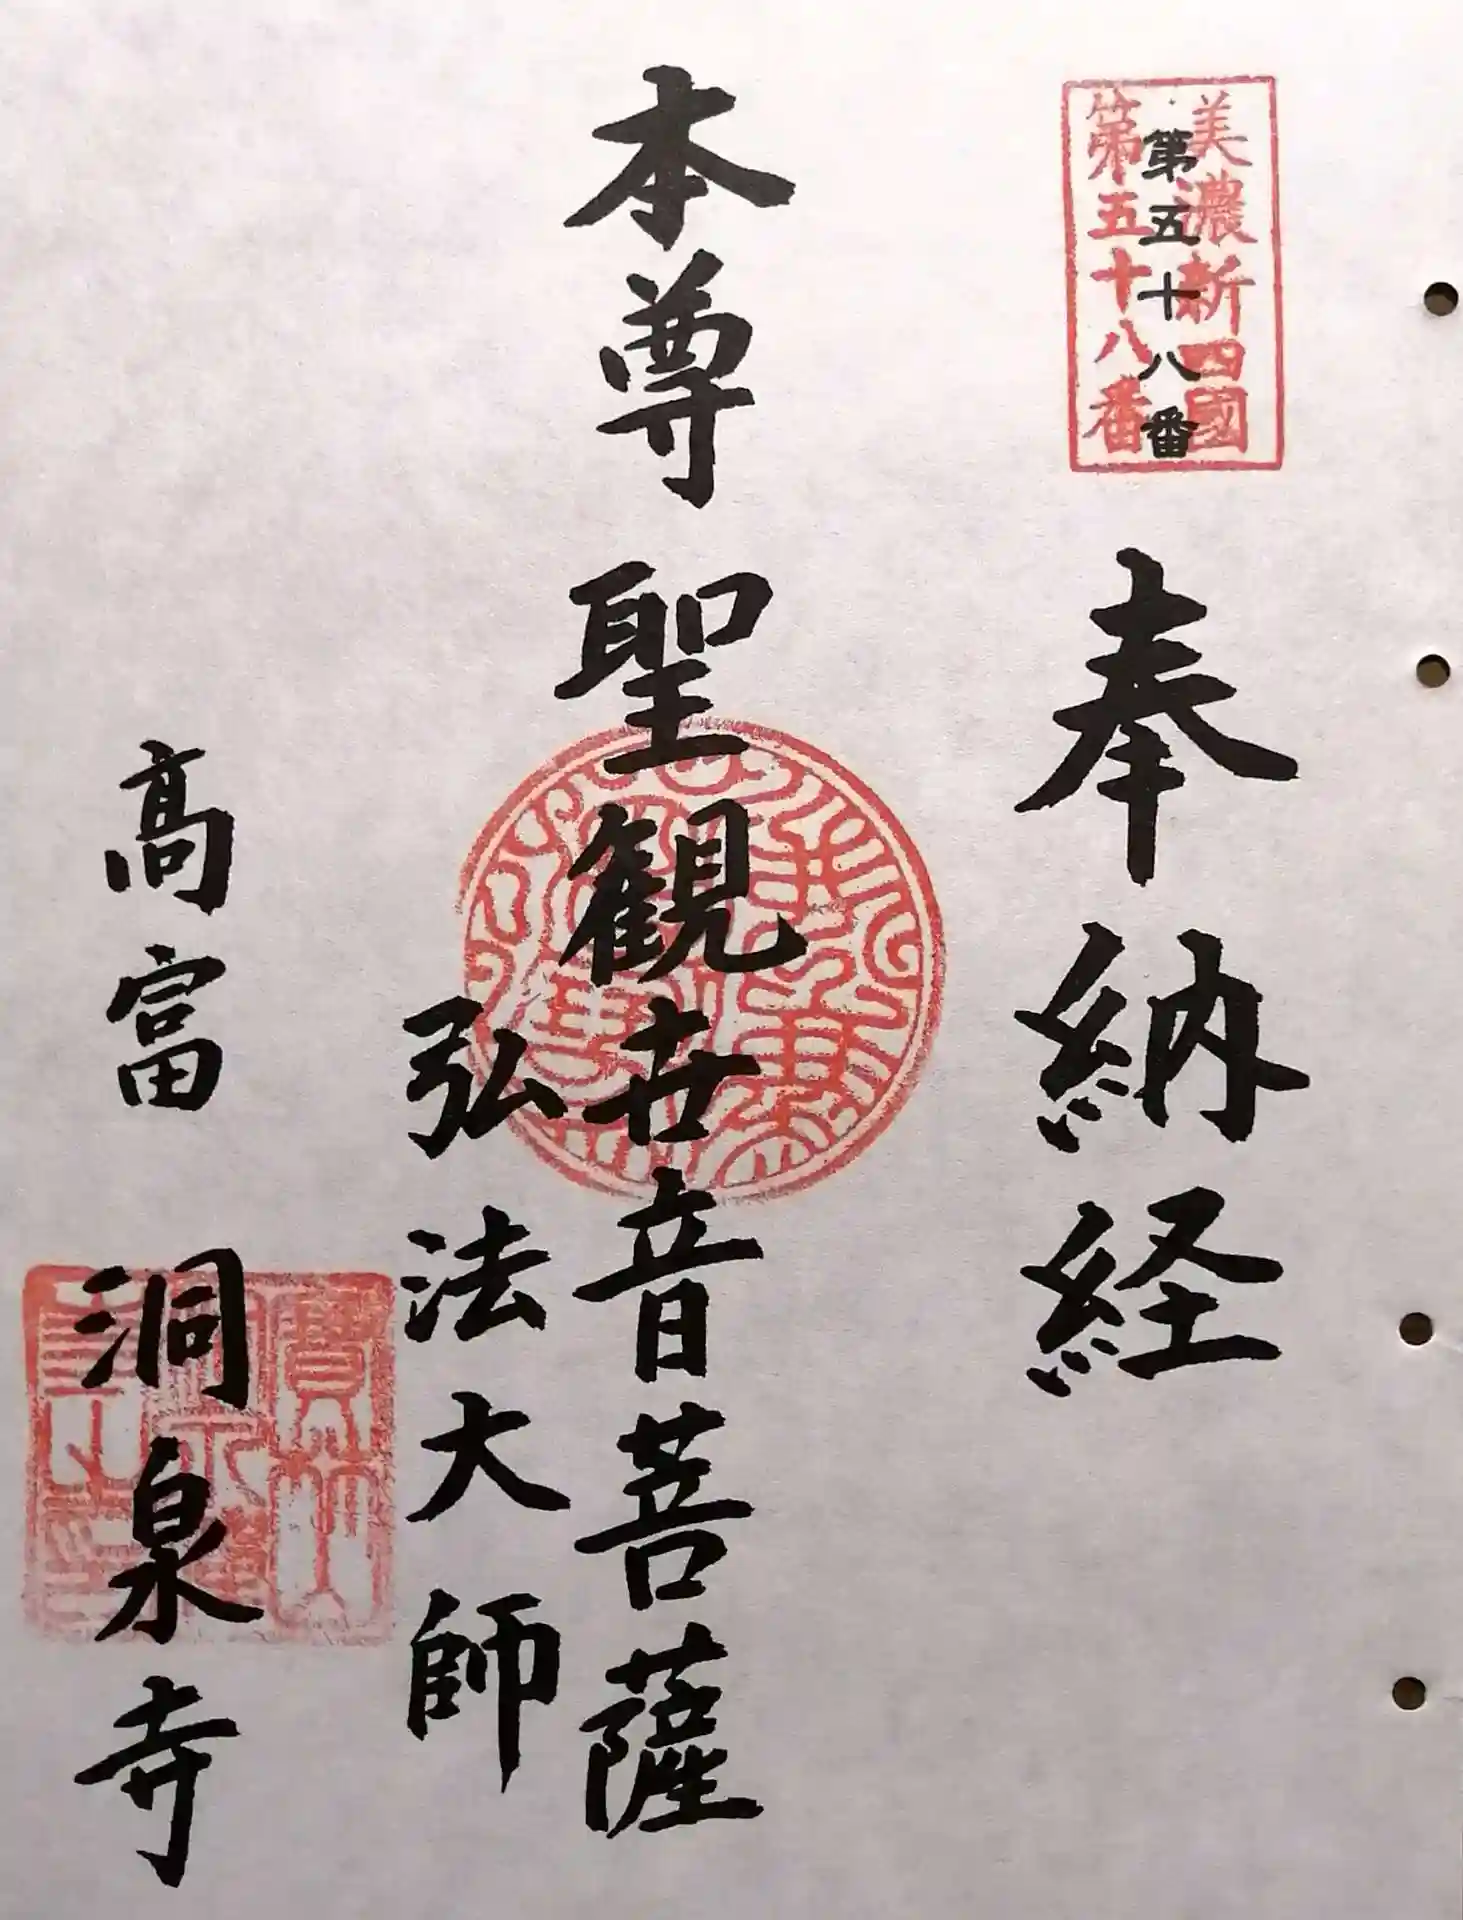 美濃新四國
第五十八番
第五十八番
奉納経
本尊聖観世音菩薩
弘法大師
高富 洞泉寺